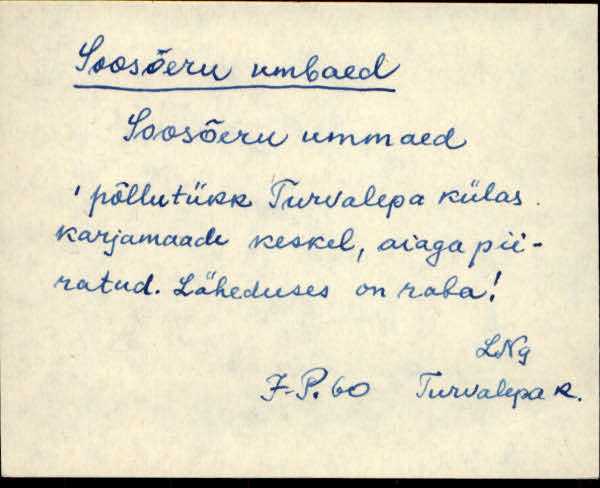 Soosõeru umbaed
Soosõeru ummaed
'põllutükk Turvalepa külas
karjamaade keskel, aiaga pii-
ratud. Läheduses on raba!
LNg
J-P. 60 Turvalepa k.